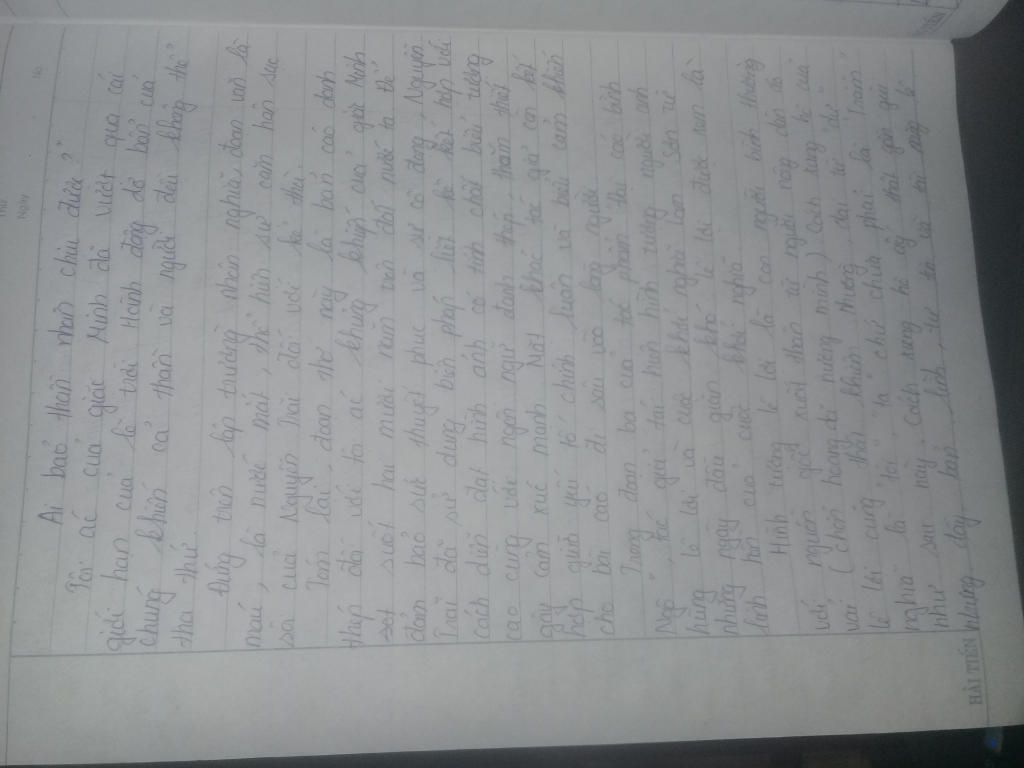 Thứ
Ngày
No
Ai bảo thần nhân chịu được?"
Tội ác của giặc Minh đã vượt qua cái
giới hạn của lẽ trời. Hành động dã bản của
chúng khiến cả thần và người đều không thể
tha thứ.
Đứng trên lập trường nhân nghĩa, đoạn văn là
máu, là nước mắt, thể hiện sự căn hận sục
sôi của Nguyễn Trãi đối với kẻ thù.
Tóm lại, đoạn thơ này là bản cáo danh
thép đối với tội ác khủng khiếp của giặc Minh
sot suốt hai mươi năm trên đất nước ta để
đảm bảo sức thuyết phục và sự cô đọng, Nguyễn
Trãi đã sử dụng biện pháp liệt kê kết hợp với
cách diễn đạt hình ảnh có tính chất biểu tượng
cao cùng với ngôn ngữ đanh thép, thấm thiết
gây cảm xúc mạnh. Mặt khác tác giả còn kết
hợp giữa yếu tố chính luận và biểu cảm khiến
cho bài cáo đi sâu vào lòng người.
Trong đoạn ba của tác phẩm "Đại cáo bình
Ngô", tác giả tái hiện hình tượng người anh
hùng Lê Lợi và cuộc khởi nghĩa Lam Sơn từ
những ngày đầu gian khó. Lê Lợi được xem là
linh hồn của cuộc khởi nghĩa.
Hình tượng Lê Lợi là con người bình thường
nguồn gốc xuất thân từ người nông dân áo
vải (chốn hoang dã nương mình) Cách xưng hô của
Lê Lợi cũng thật khiêm nhường, đại từ "dư"
nghĩa là "tôi", "ta" chứ chưa phải là "trẫm"
như sau này, cách xưng hô ấy thật gần gũi
nhưng đầy bản lĩnh, tự tin
HẢI TIẾN